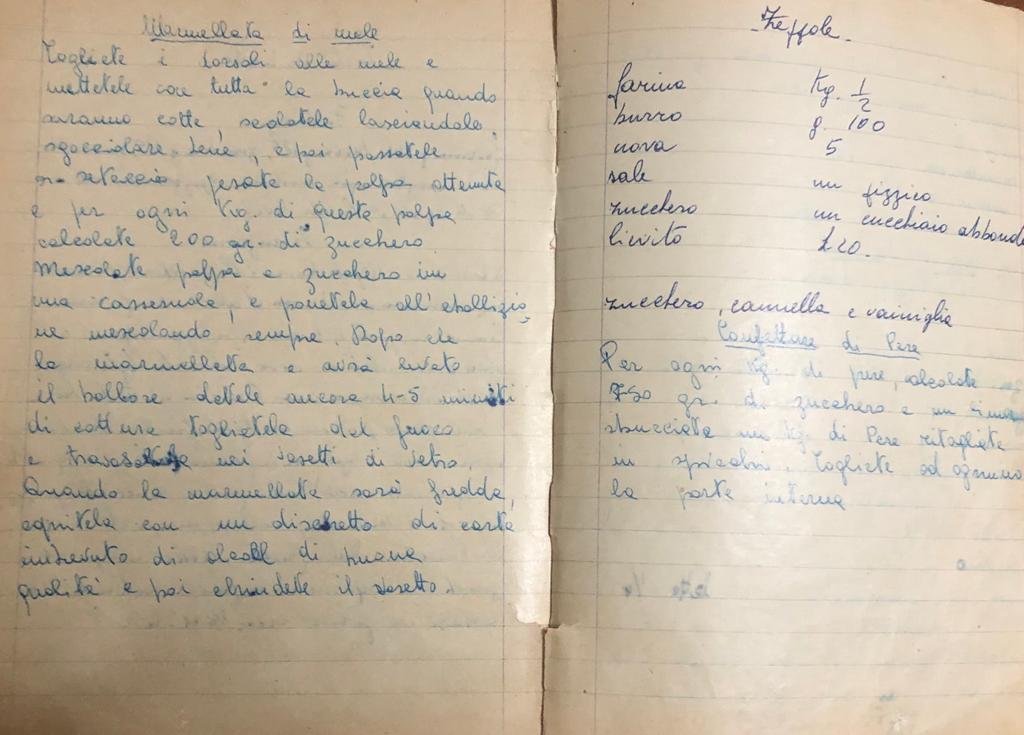 Marmellata di mele
Togliete i torsoli alle mele e
mettetele con tutta la buccia quando
saranno cotte, scolatele lasciandole
sgocciolare bene, e poi passatele
a setaccio pesate la polpa ottenuta
e per ogni Kg. di questa polpa
calcolate 200 gr. di zucchero.
Mescolate polpa e zucchero in
una casseruola, e ponetela all'ebollizio
ne mescolando sempre. Dopo che
la marmellata e avrà levato
il bollore datele ancora 4-5 minuti
di cottura toglietela dal fuoco
e nei vasetti di vetro.
Quando la marmellata sarà fredda,
copritela con un dischetto di carta
imbevuto di alcool di buona
qualità e poi chiudete il vasetto.
Zeppole.
farina Kg. 1/2
burro g. 100
nova 5
sale un pizzico
zucchero un cucchiaio abbonda
lievito £20.
zucchero, cannella e vainiglia
Confettura di Pere
Per ogni Kg. di pere, calcolate
750 gr. di zucchero e un
sbucciate un Kg. di Pere ritagliate
in spicchi. Togliete ad ognuno
la parte interna